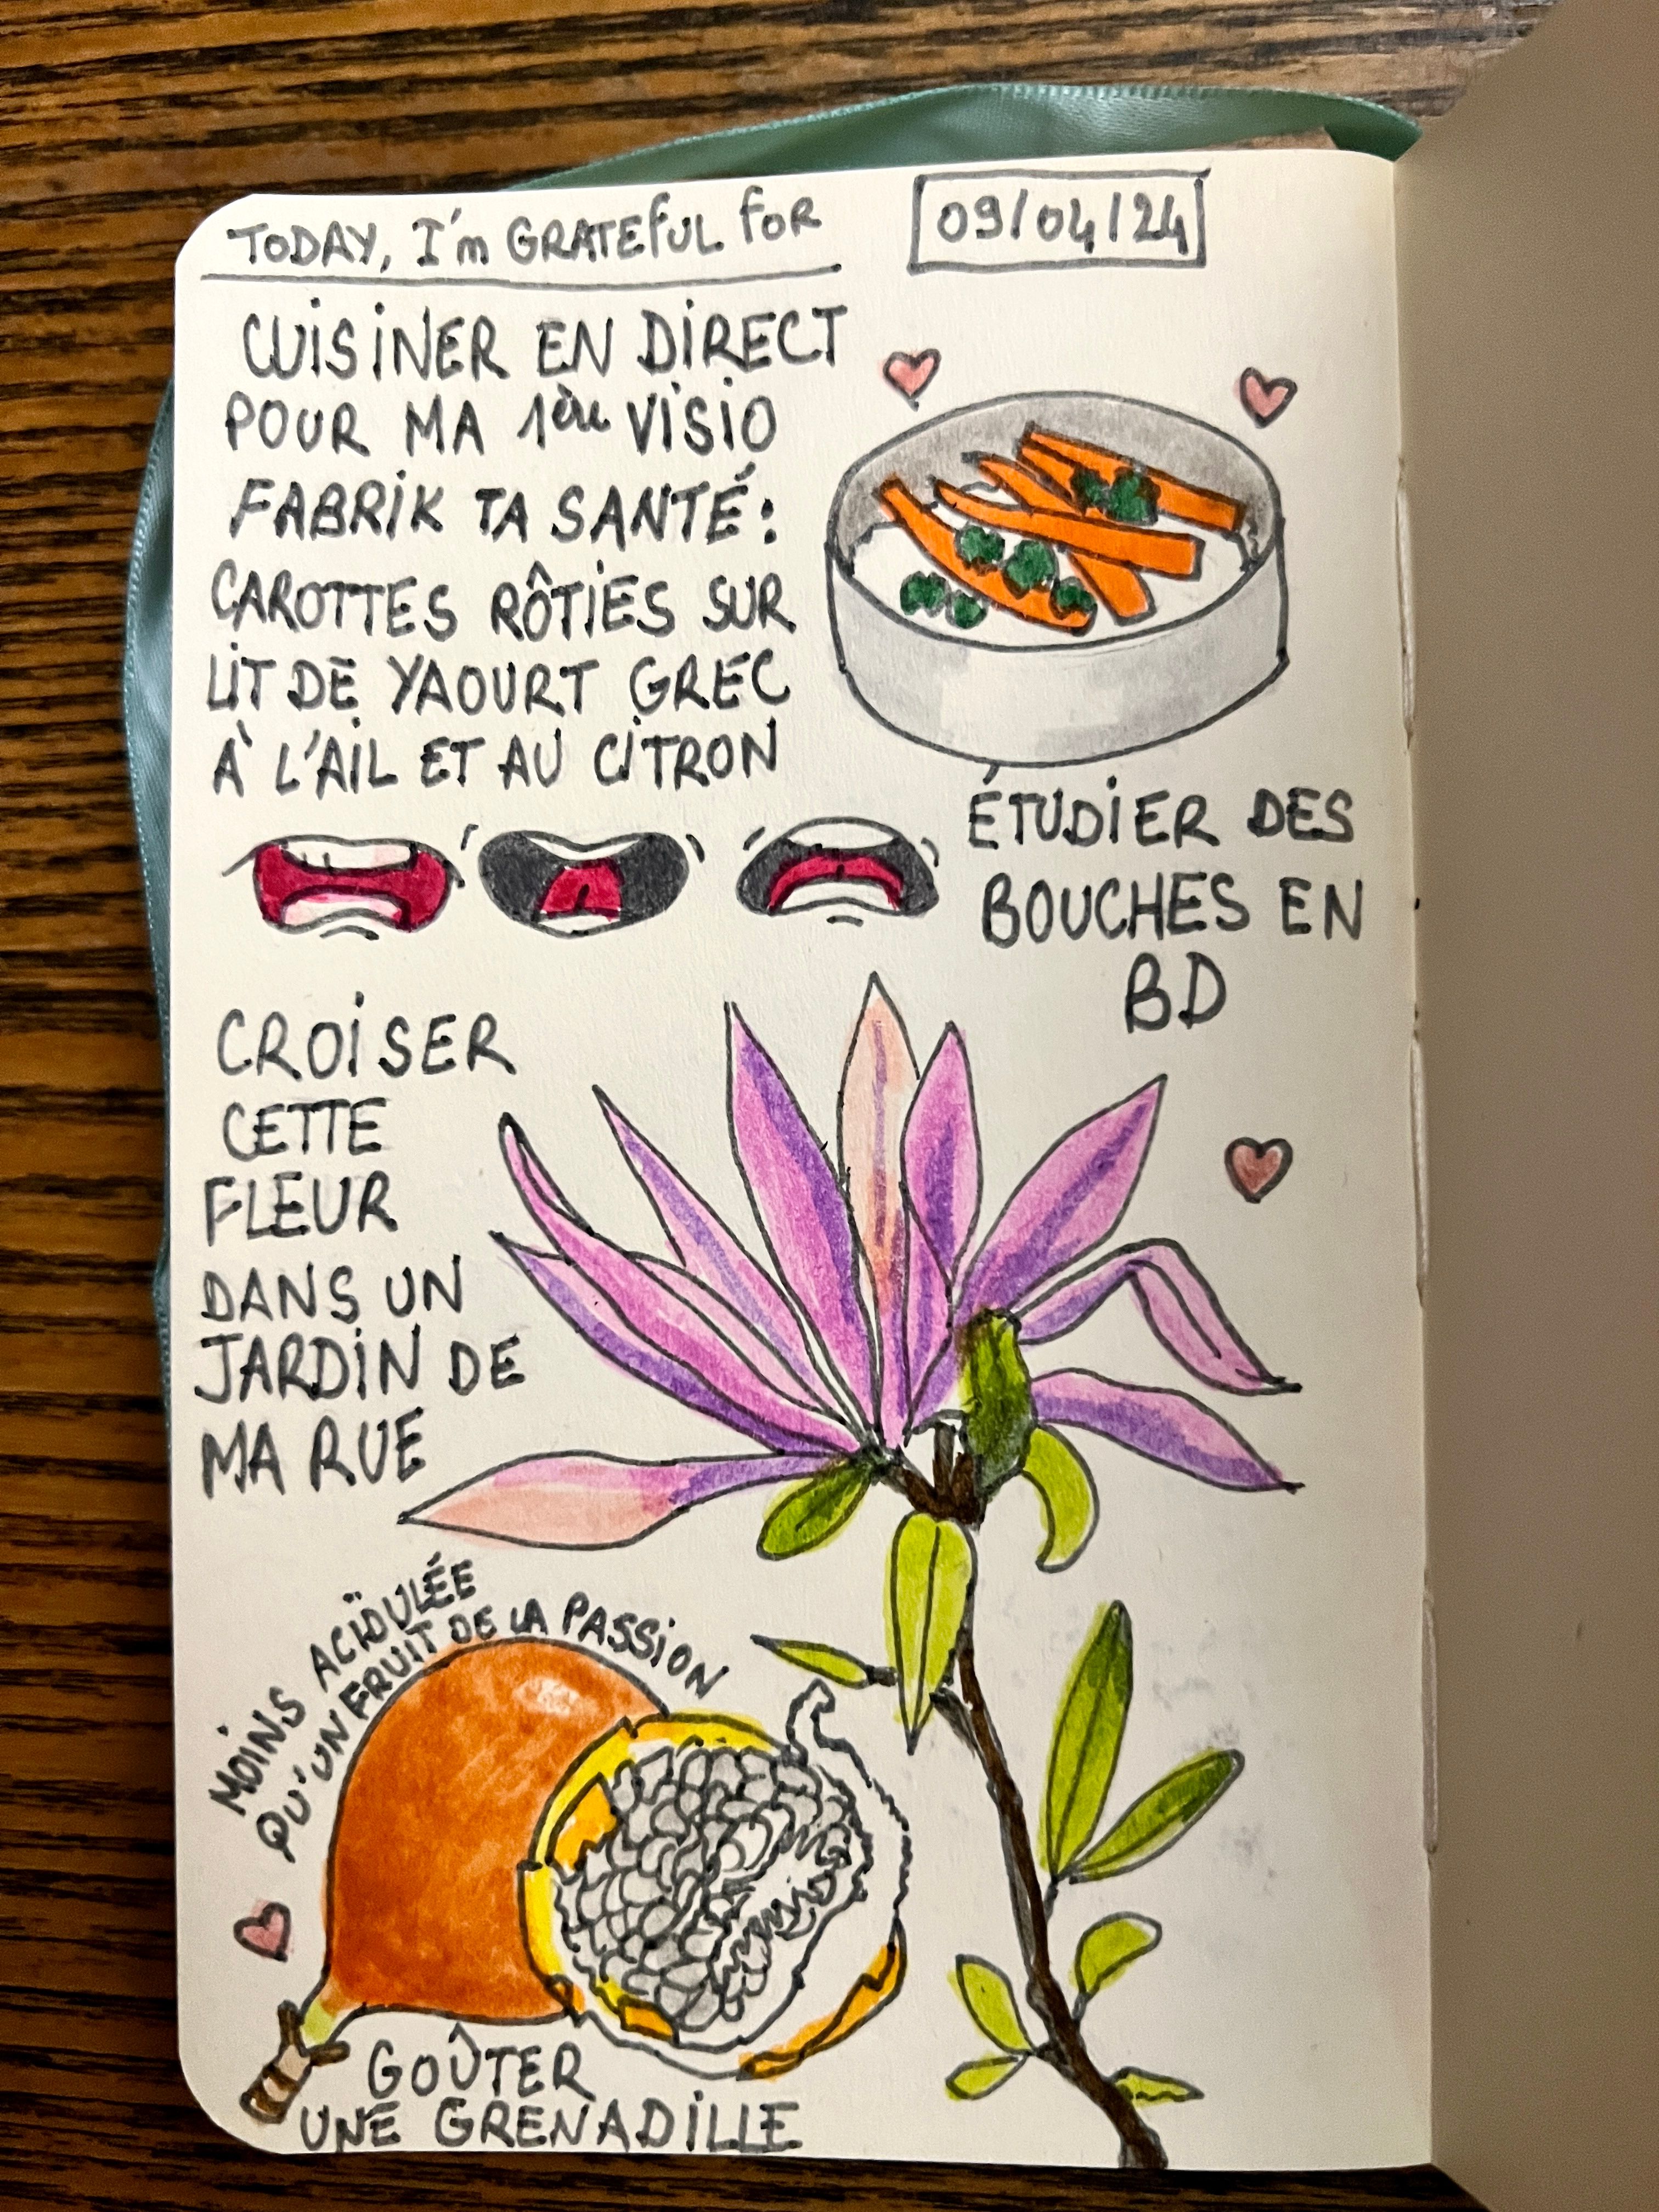 TODAY, I'm GRATEFUL FOR
09/04/24
CUISINER EN DIRECT
POUR MA 1ère VISIO
FABRIK TA SANTÉ :
CAROTTES RÔTIES SUR
LIT DE YAOURT GREC
À L'AIL ET AU CITRON
ÉTUDIER DES
BOUCHES EN
BD
CROISER
CETTE
FLEUR
DANS UN
JARDIN DE
MA RUE
MOINS ACÏDULÉE
QU'UN FRUIT DE LA PASSION
GOÛTER
UNE GRENADILLE